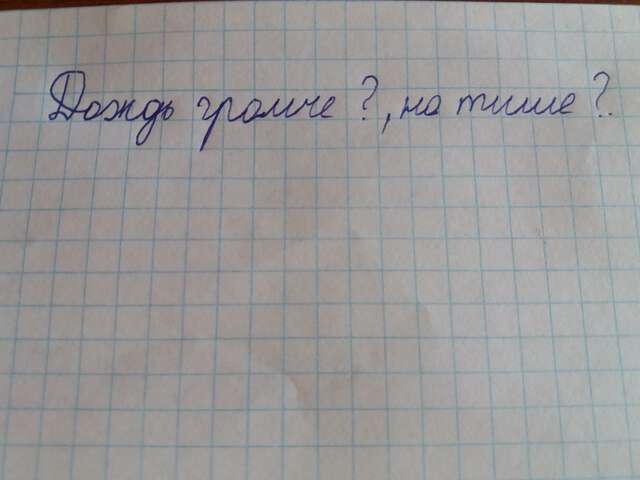 Дождь громче ?, но тише ?.